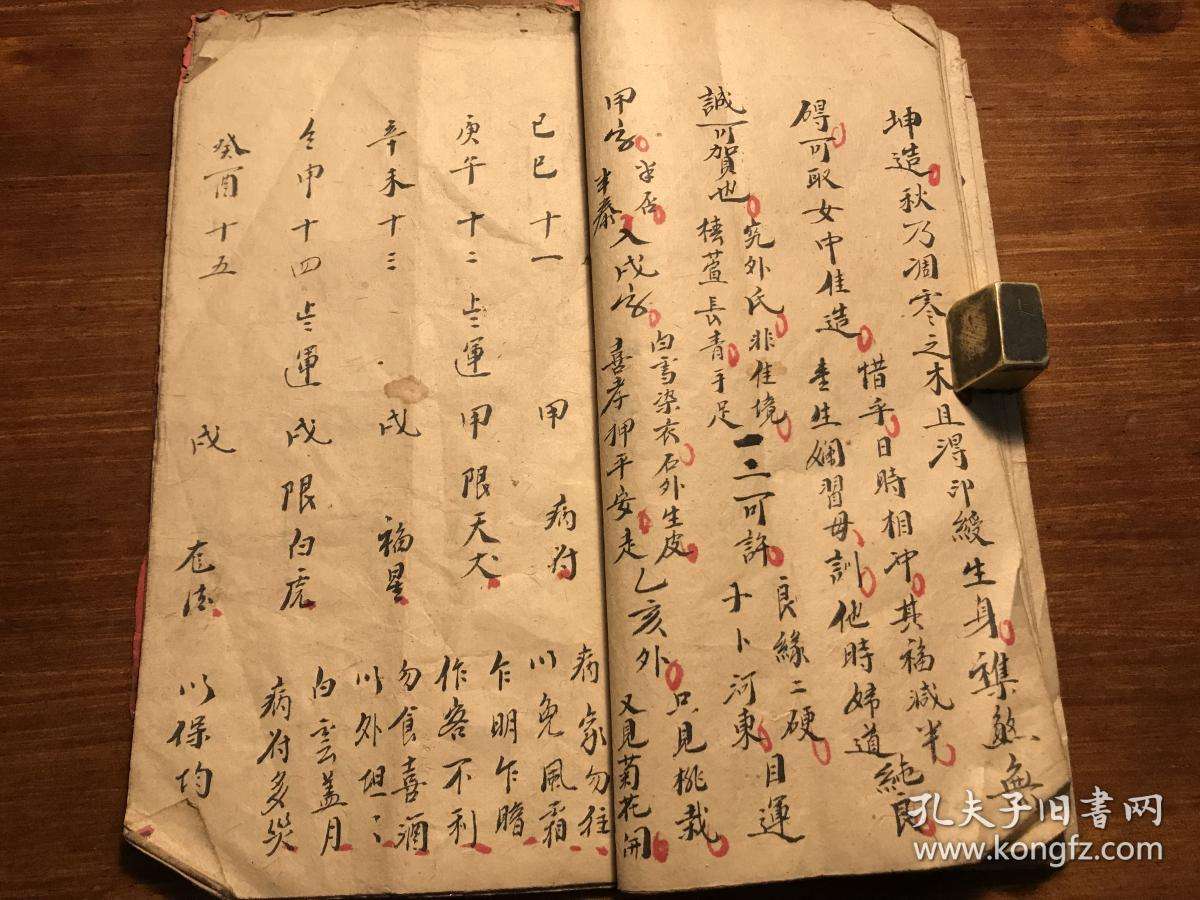 坤造秋乃凋零之木且得印綬生身襍煞無
碍可取女中佳造惜乎日時相冲其福减半
生嫻習母訓他時婦道純良
誠可賀也究外氏非佳境
椿萱長青手足一二可許良緣二硬目運
卜河東
甲字半否半泰入戌字白雪染衣石外生皮
喜孝押平安走乙亥外只見桃栽
又見菊花開
己巳十一 甲 病符 病家勿往
以免風霜
庚午十二 上運甲限天犬 乍明乍暗
作客不利
辛未十三 戌 福星 勿食喜酒
以外坦坦
壬申十四 上運戌限白虎 白雲盖月
病符多災
癸酉十五 戌 以保均
孔夫子旧书网
www.kongfz.com